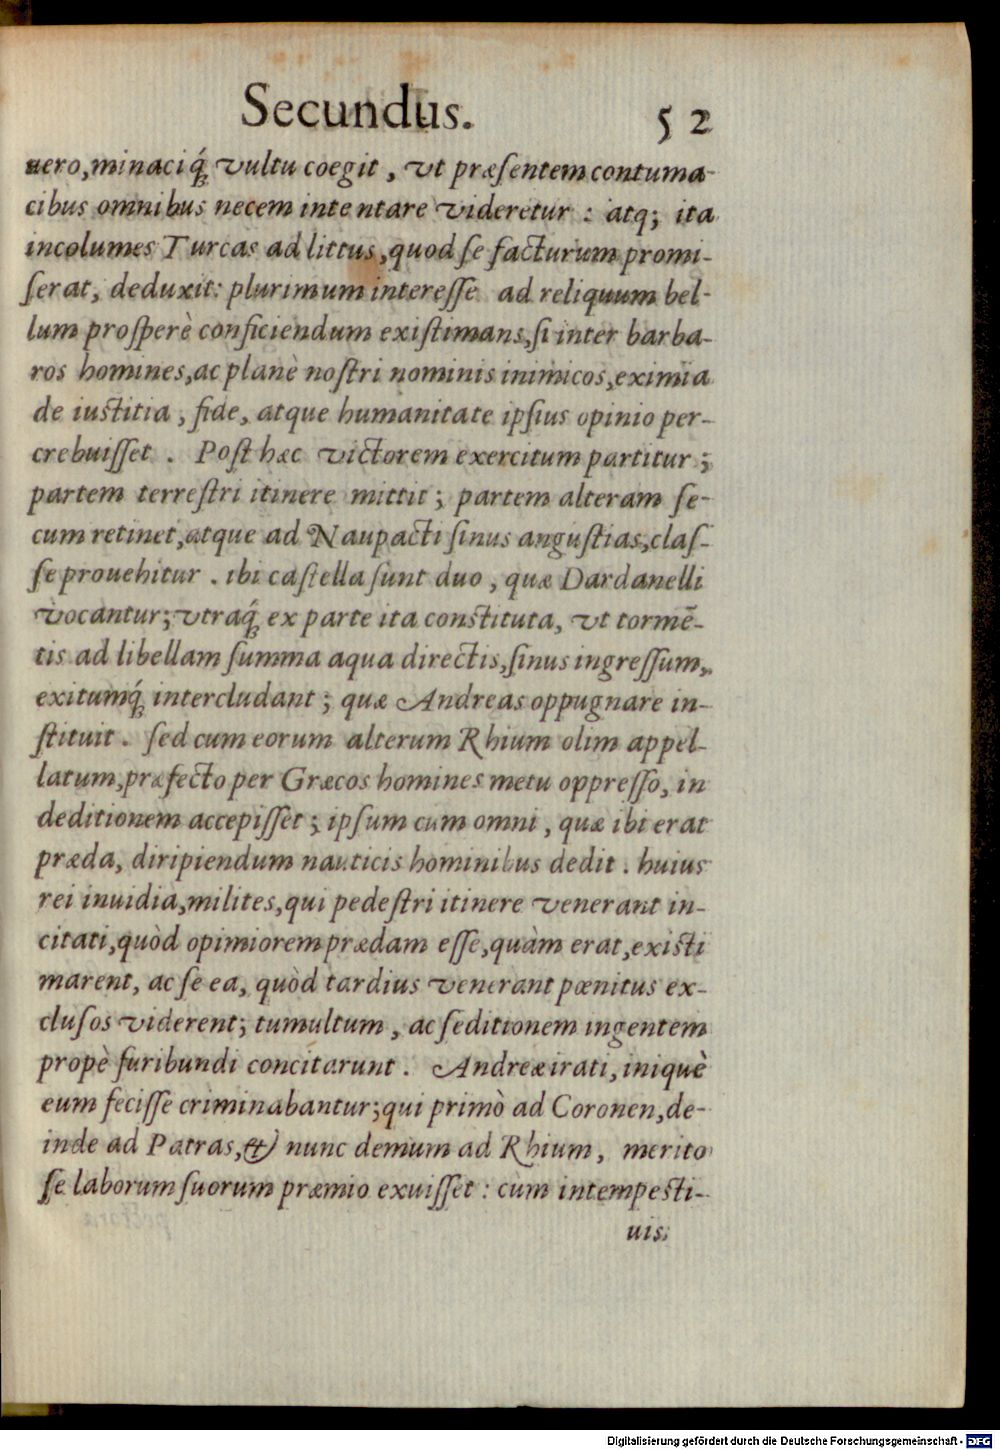 Secundus. 52
uero, minaciq́; vultu coegit, vt præſentem contuma-
cibus omnibus necem intentare videretur: atq; ita
incolumes Turcas ad littus, quod ſe facturum promi-
ſerat, deduxit: plurimum intereſſe ad reliquum bel-
lum proſperè conficiendum exiſtimans, ſi inter barba-
ros homines, ac planè noſtri nominis inimicos, eximia
de iuſtitia, fide, atque humanitate ipſius opinio per-
crebuiſſet. Poſt hæc victorem exercitum partitur;
partem terreſtri itinere mittit; partem alteram ſe-
cum retinet, atque ad Naupacti ſinus anguſtias, claſ-
ſe prouehitur. ibi caſtella ſunt duo, quæ Dardanelli
vocantur; vtraq́; ex parte ita conſtituta, vt tormẽ-
tis ad libellam ſumma aqua directis, ſinus ingreſſum,
exitumq́; intercludant; quæ Andreas oppugnare in-
ſtituit. ſed cum eorum alterum Rhium olim appel-
latum, præfecto per Græcos homines metu oppreſſo, in
deditionem accepiſſet; ipſum cum omni, quæ ibi erat
præda, diripiendum nauticis hominibus dedit. huius
rei inuidia, milites, qui pedeſtri itinere venerant in-
citati, quòd opimiorem prædam eſſe, quàm erat, exiſti
marent, ac ſe ea, quòd tardius venerant pœnitus ex-
cluſos viderent; tumultum, ac ſeditionem ingentem
propè furibundi concitarunt. Andreæ irati, iniquè
eum feciſſe criminabantur; qui primò ad Coronen, de-
inde ad Patras, & nunc demum ad Rhium, merito
ſe laborum ſuorum præmio exuiſſet: cùm intempeſti-
uis
Digitalisierung gefördert durch die Deutsche Forschungsgemeinschaft - DFG